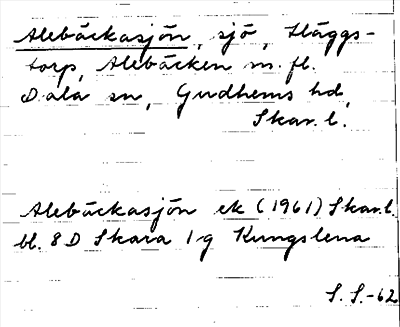 Alebäckasjön, sjö, Släggs-
torp, Alebäcken m. fl.
Dala sn, Gudhems hd,
Skar. l.
Alebäckasjön ek (1961) Skar. l.
bl. 8D Skara 1g Kungslena
S. S. -62